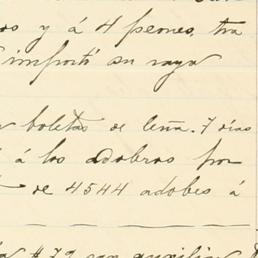 os y á 4 peones, tra
importó su raya
boletas de leña. 7 días
á los adobros por
de 4544 adobes á